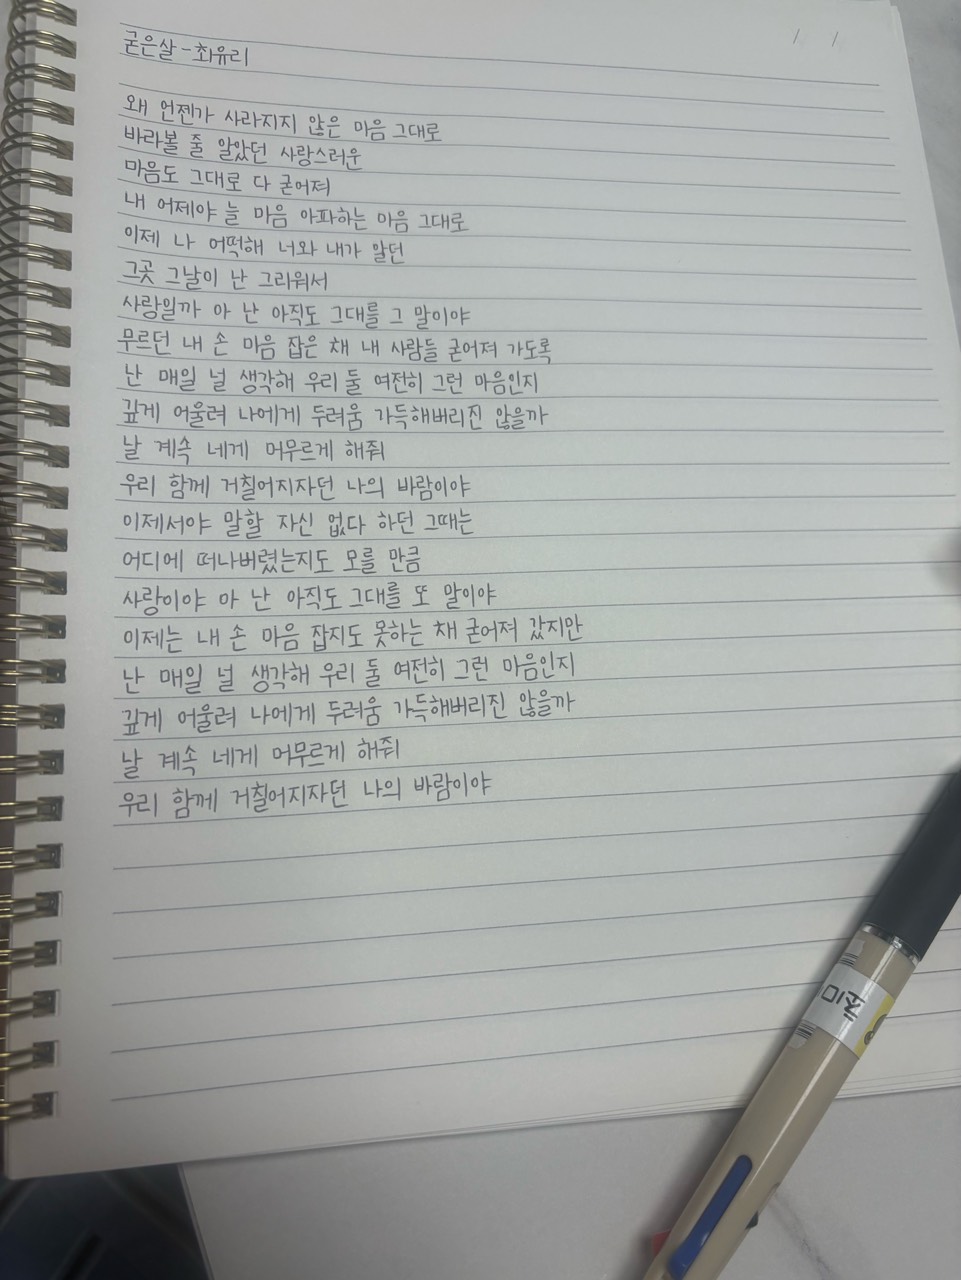 굳은살 - 최유리
/ /
왜 언젠가 사라지지 않은 마음 그대로
바라볼 줄 알았던 사랑스러운
마음도 그대로 다 굳어져
내 어제야 늘 마음 아파하는 마음 그대로
이제 나 어떡해 너와 내가 알던
그곳 그날이 난 그리워서
사랑일까 아 난 아직도 그대를 그 말이야
무르던 내 손 마음 잡은 채 내 사람들 굳어져 가도록
난 매일 널 생각해 우리 둘 여전히 그런 마음인지
깊게 어울려 나에게 두려움 가득해버리진 않을까
날 계속 네게 머무르게 해줘
우리 함께 거칠어지자던 나의 바람이야
이제서야 말할 자신 없다 하던 그때는
어디에 떠나버렸는지도 모를 만큼
사랑이야 아 난 아직도 그대를 또 말이야
이제는 내 손 마음 잡지도 못하는 채 굳어져 갔지만
난 매일 널 생각해 우리 둘 여전히 그런 마음인지
깊게 어울려 나에게 두려움 가득해버리진 않을까
날 계속 네게 머무르게 해줘
우리 함께 거칠어지자던 나의 바람이야